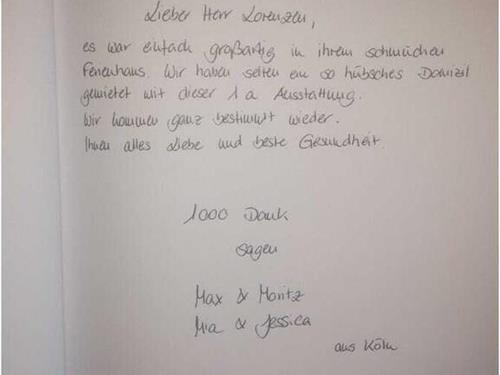 Lieber Herr Lorenzen,
es war einfach großartig in ihrem schnucken
Ferienhaus. Wir haben selten ein so hübsches Domizil
gemietet mit dieser 1a Ausstattung.
Wir kommen ganz bestimmt wieder.
Ihnen alles Liebe und beste Gesundheit.
1000 Dank
sagen
Max & Moritz
Mia & Jessica
aus Köln